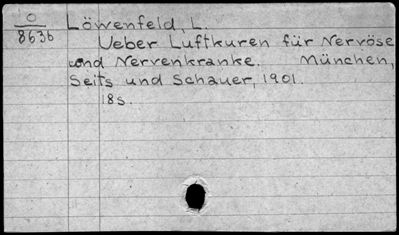 O
8636
Löwenfeld, L.
Ueber Luftkuren für Nervöse
und Nervenkranke. München,
Seits und Schauer, 1901.
18s.